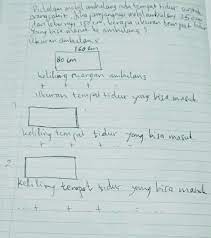 Didalam mobil ambulang ada tempat tidur
orang sakit. jika panjang mobil ambulans 250 cm
dan lebarnya berapa ukuran tempat tidur
Yang bisa masuk ke ambulans ?
Ukuran ambulans
160 cm
80 cm
keliling ruangan ambulans
+ + + =
Ukuran tempat tidur yang bisa masuk
1.
keliling tempat tidur yang bisa masuk
+ + + =
2.
keliling tempat tidur yang bisa masuk
+ + + =